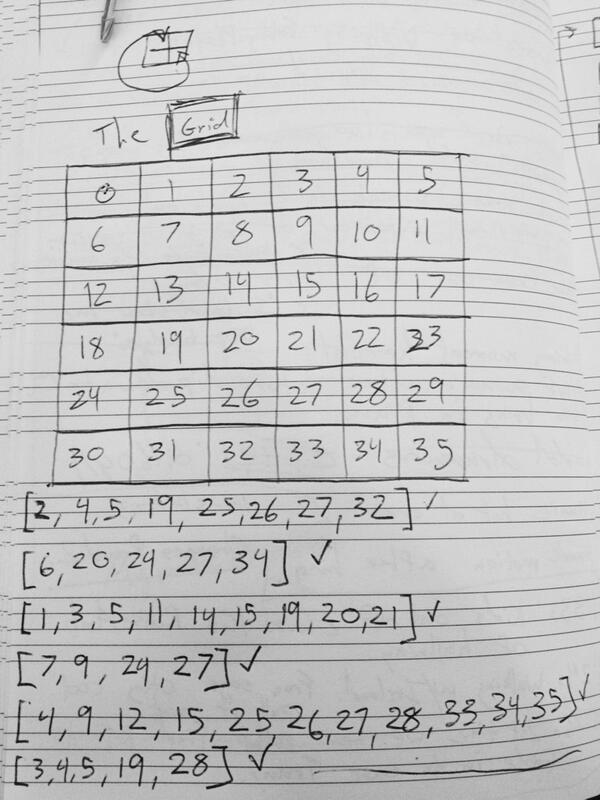 The Grid
0 1 2 3 4 5
6 7 8 9 10 11
12 13 14 15 16 17
18 19 20 21 22 23
24 25 26 27 28 29
30 31 32 33 34 35
[2, 4, 5, 19, 25, 26, 27, 32] ✓
[6, 20, 24, 27, 34] ✓
[1, 3, 5, 11, 14, 15, 19, 20, 21] ✓
[7, 9, 24, 27] ✓
[4, 9, 12, 15, 25, 26, 27, 28, 33, 34, 35] ✓
[3, 4, 5, 19, 28] ✓